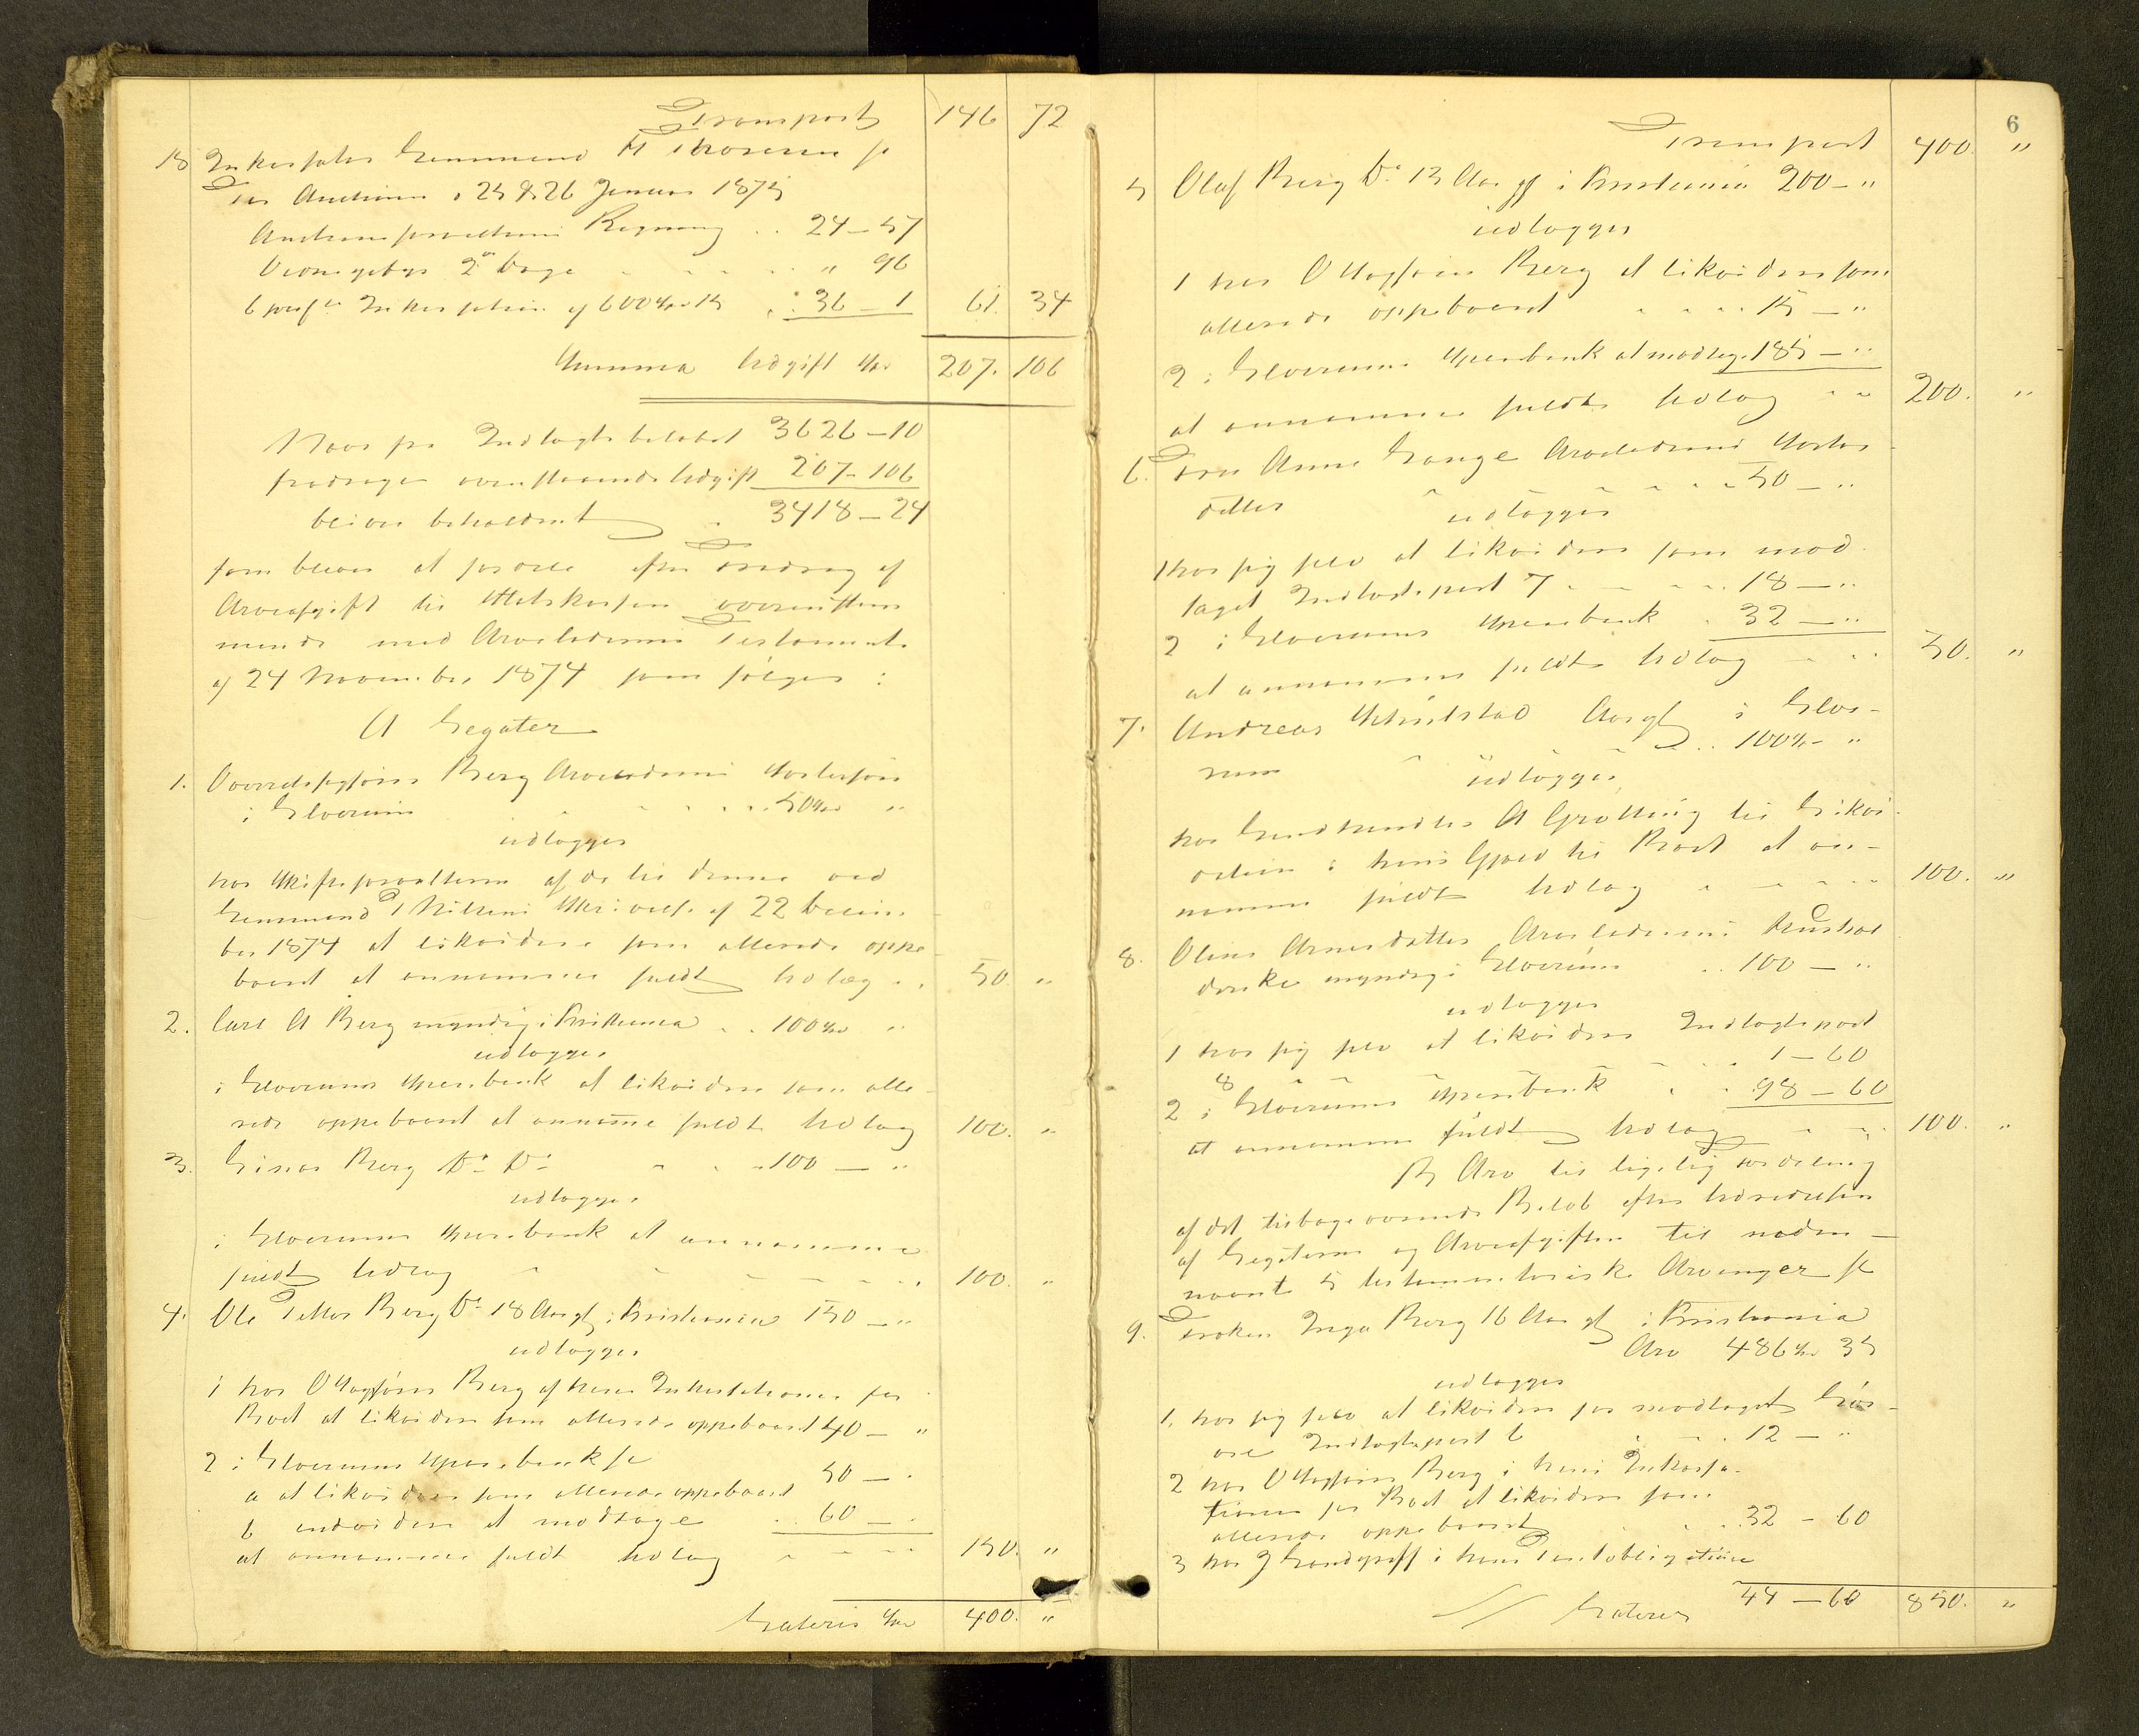 Transport 146 72
18 Inkassator Lensmand H Thoresen for
Auctionen 25 & 26 Januar 1875
Auctionsforvalterens Regning .. 24 – 57
2de Dage . . . . " 96
6 proCt Inkassation af 600 Spd 15 .. 36 – 1 61. 34
Summa Udgift Spd 207. 106
Naar fra Indtægtsbeløbet 3626 – 10
fradrages ovenstaaende Udgift 207 – 106
bliver beholdent . 3418 – 24
som bliver at fordele efter Fradrag af
Arveafgift til Statskassen overensstem
mende med Arveladerens Testament
af 24 November 1874 som følger:
A Legater
1. Overretssagfører Berg Arveladerens Søstersøn
i Elverum . . . . 50 Spd "
udlægges
hos Skifteforvalteren af de til denne ved
Lensmand Nilsens Skrivelse af 22 Decem
ber 1874 at likvidere som allerede oppe
baaret at annamme fuldt Udlæg . . 50. "
2. Carl A Berg myndig i Kristiania . . 100 Spd "
udlægges
i Elverums Sparebank at likvidere som alle
rede oppebaaret at annamme fuldt Udlæg 100. "
3. Einar Berg Do Do . . . 100 – "
udlægges
i Elverums Sparebank at annamme
fuldt Udlæg . . . . . . 100. "
4. Ole Berg Do 18 Aar gl. i Kristiania 150 – "
udlægges
1 hos O Sagfører Berg af hans Inkassationer for
Boet at likvidere som allerede oppebaaret 40 – "
2 i Elverums Sparebank
a at likvidere som allerede oppebaaret 50 – .
b endvidere at modtage . . 60 – .
at annamme fuldt Udlæg . . . . 150. "
Lateris Spd 400. "
6
Transport 400. "
5 Olaf Berg Do 15 Aar gl i Kristiania 200 – "
udlægges
1 hos O Sagfører Berg at likvidere som
allerede oppebaaret . . . . 15 – "
2 i Elverums Sparebank at modtage 185 – "
at annamme fuldt Udlæg . . 200. "
6. Anne Lange Arveladerens Søster
datter . . . . . 50 – "
udlægges
1 hos sig selv at likvidere som mod
taget Indtægtspost 7 . . . . 18 – "
2 i Elverums Sparebank . 32 – "
at annamme fuldt Udlæg . . . 50. "
7. Andreas i Elve-
rum . . . . 100 Spd "
udlægges
hos Landhandler A Grøtting til Likvi
dation i hans Gjæld til Boet at an-
namme fuldt Udlæg . . . . 100. "
8. Oline Arnesdatter Arveladerens Hushol
derske myndig i Elverum . . 100 – "
udlægges
1 hos sig selv at likvidere Indtægtspost
8 . . . . . . 1 – 60
2 i Elverums Sparebank . . 98 – 60
at annamme fuldt Udlæg . . . 100. "
B Arv til ligelig Fordeling
af det tilbageværende Beløb efter Udredelsen
af Legaterne og Arveafgiften til neden-
nævnte 5 testamentariske Arvinger
9. Frøken Inga Berg 16 Aar gl i Kristiania
Arv 486 Spd 35
udlægges
1. hos sig selv at likvidere for modtaget Løs-
øre Indtægtspost 6 . . . 12 – "
2 hos O Sagfører Berg i hans Inkassa-
tioner for Boet at likvidere som
allerede oppebaaret . . . 32 – 60
3 hos i hans Panteobligation
Lateris 44 – 60 850. "